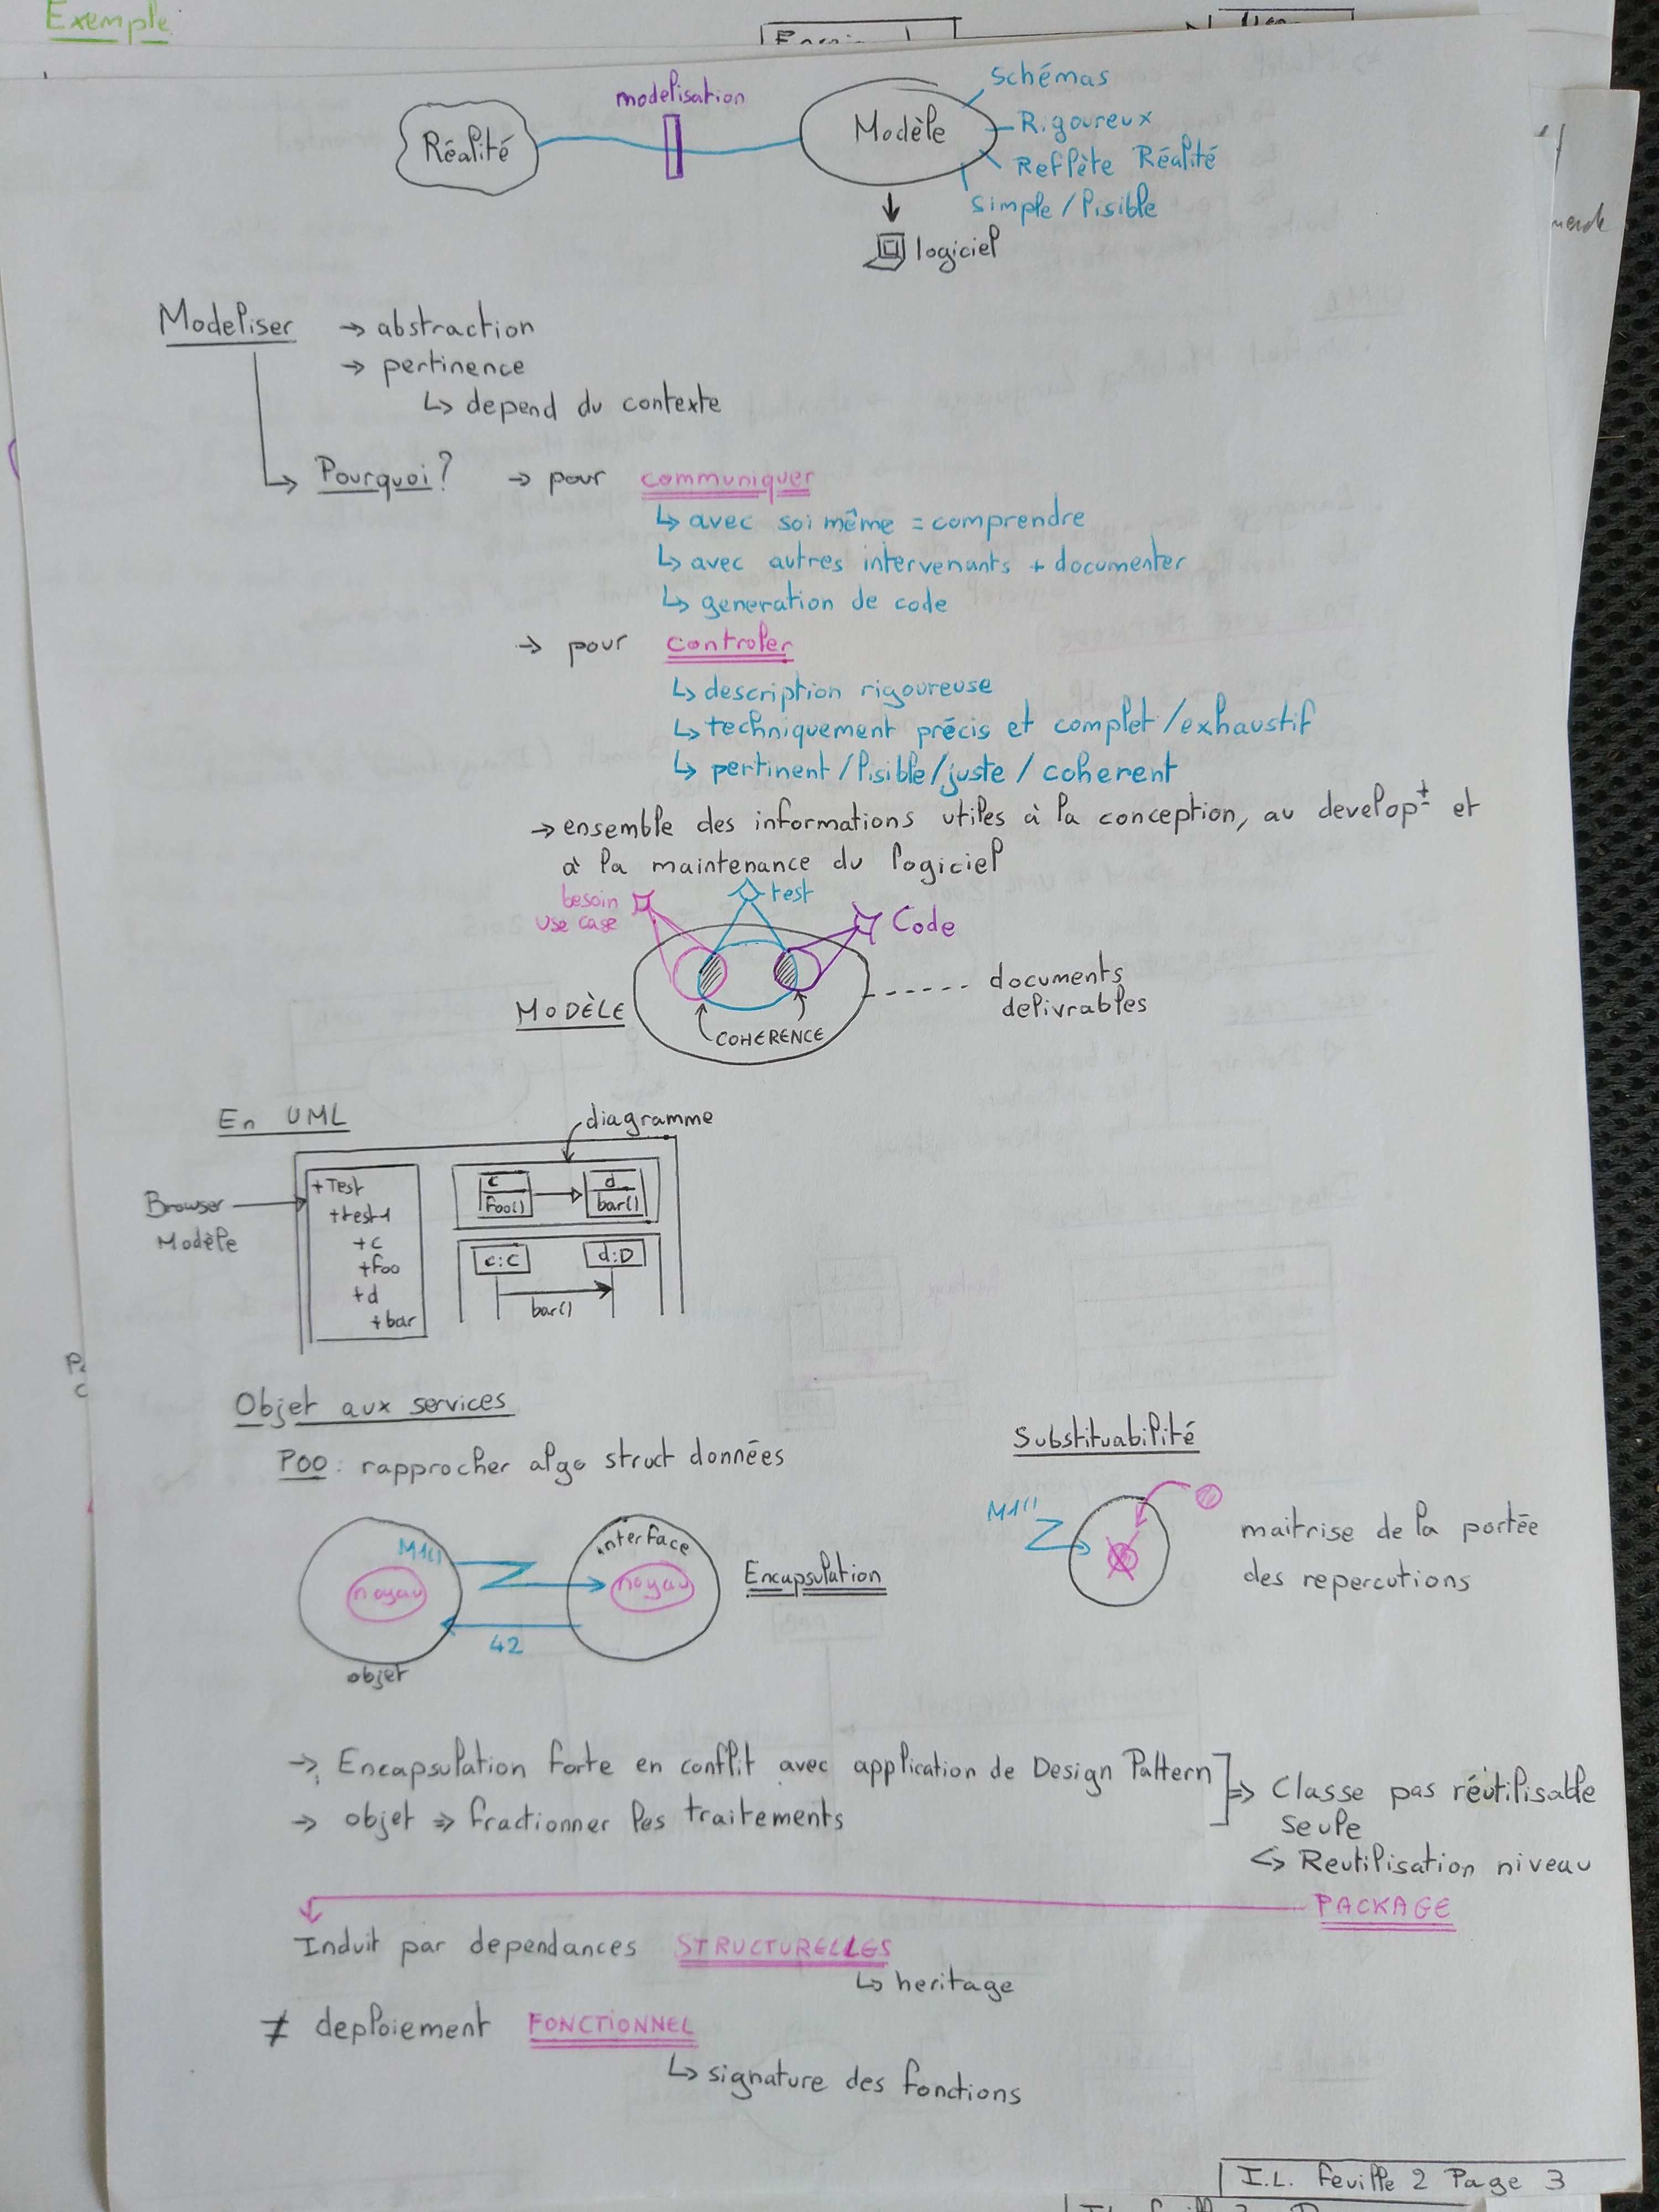 Exemple
modelisation
Schémas
Réalité
Modèle
Rigoureux
Reflète Réalité
Simple / lisible
logiciel
Modeliser → abstraction
→ pertinence
↳ depend du contexte
↳ Pourquoi ? → pour communiquer
↳ avec soi même = comprendre
↳ avec autres intervenants + documenter
↳ generation de code
→ pour controler
↳ description rigoureuse
↳ techniquement précis et complet / exhaustif
↳ pertinent / lisible / juste / coherent
→ ensemble des informations utiles à la conception, au developt et
à la maintenance du logiciel
besoin
use case
test
Code
MODÈLE
COHERENCE
documents
delivrables
En UML
diagramme
Browser
Modèle
+Test
+test1
+c
+foo
+d
+bar
c
foo()
d
bar()
c:C
d:D
bar()
Objet aux services
POO : rapprocher algo struct données
Substituabilité
M1()
noyau
objet
42
interface
noyau
Encapsulation
M1()
maitrise de la portée
des repercutions
→ Encapsulation forte en conflit avec application de Design Pattern
→ objet ⇒ fractionner les traitements
⇒ Classe pas réutilisable
seule
↳ Reutilisation niveau
PACKAGE
Induit par dependances STRUCTURELLES
↳ heritage
≠ deploiement FONCTIONNEL
↳ signature des fonctions
I.L. feuille 2 Page 3